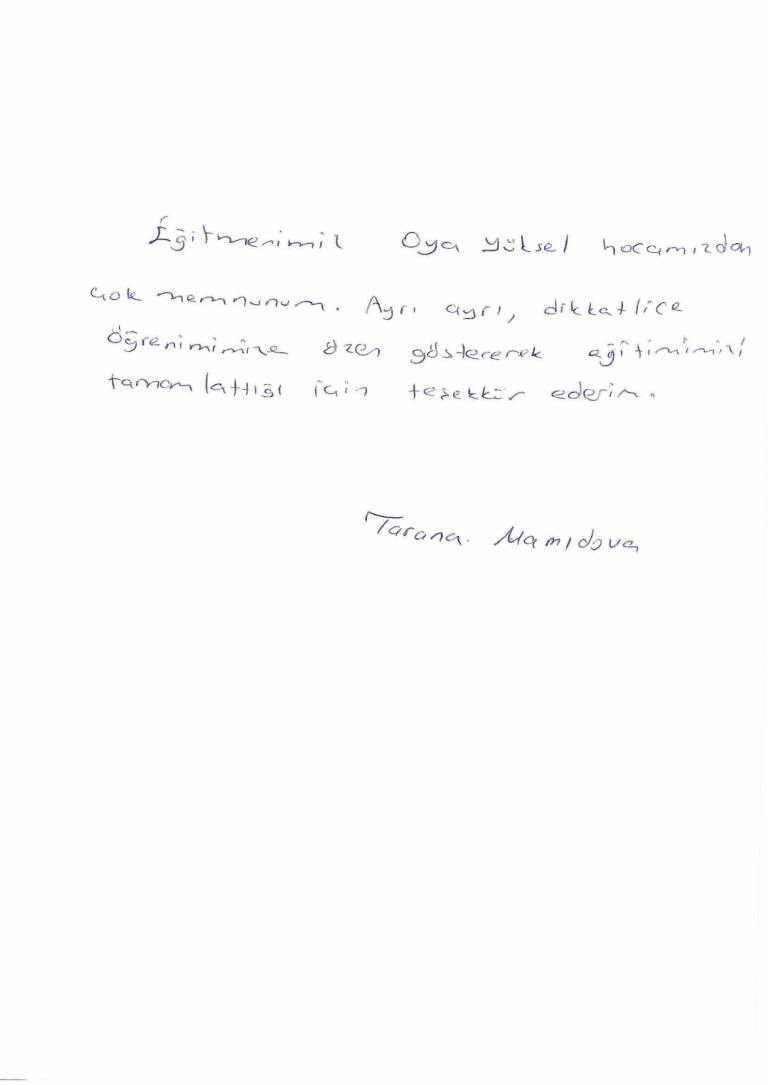 Eğitmenimiz Oya Yüksel hocamızdan
çok memnunum. Ayrı ayrı, dikkatlice
öğrenimimize özen göstererek eğitimimizi
tamamlattığı için teşekkür ederim.
Tarana. Mamıdova